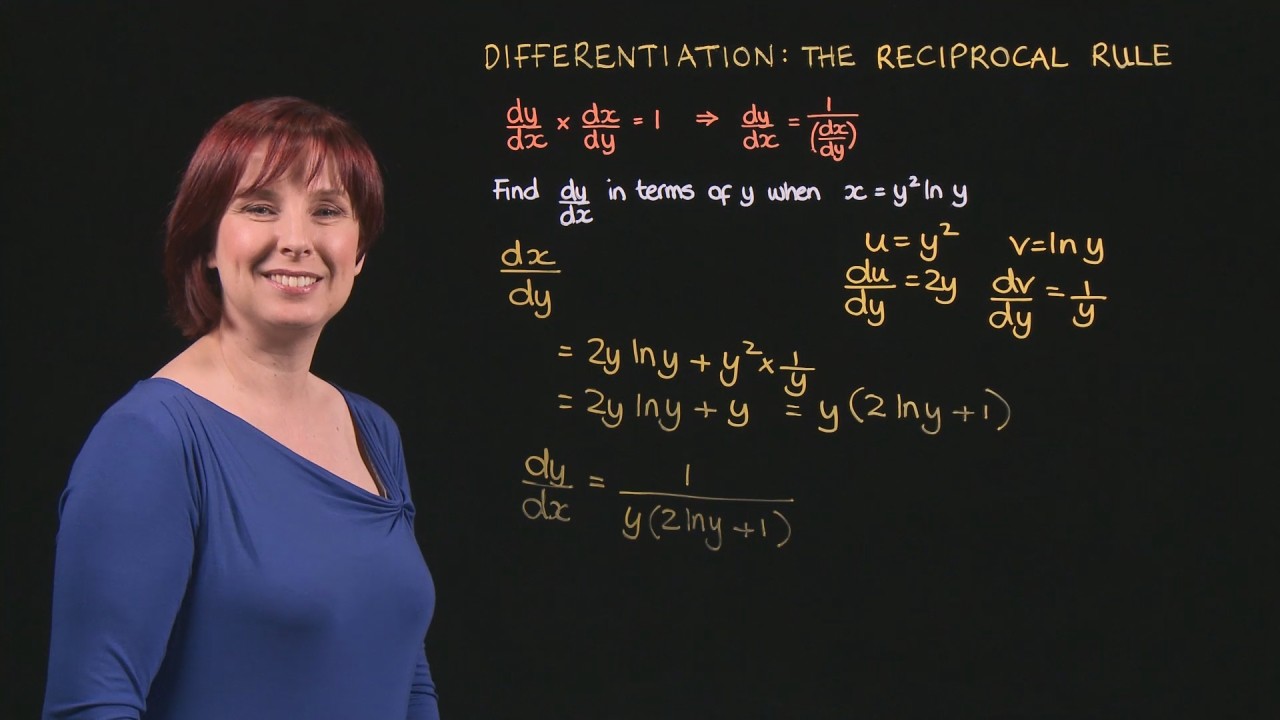 DIFFERENTIATION: THE RECIPROCAL RULE
dy/dx × dx/dy = 1 ⇒ dy/dx = 1/(dx/dy)
Find dy/dx in terms of y when x = y² ln y
u = y² v = ln y
dx/dy
du/dy = 2y dv/dy = 1/y
= 2y ln y + y² × 1/y
= 2y ln y + y = y (2 ln y + 1)
dy/dx = 1/(y (2 ln y + 1))